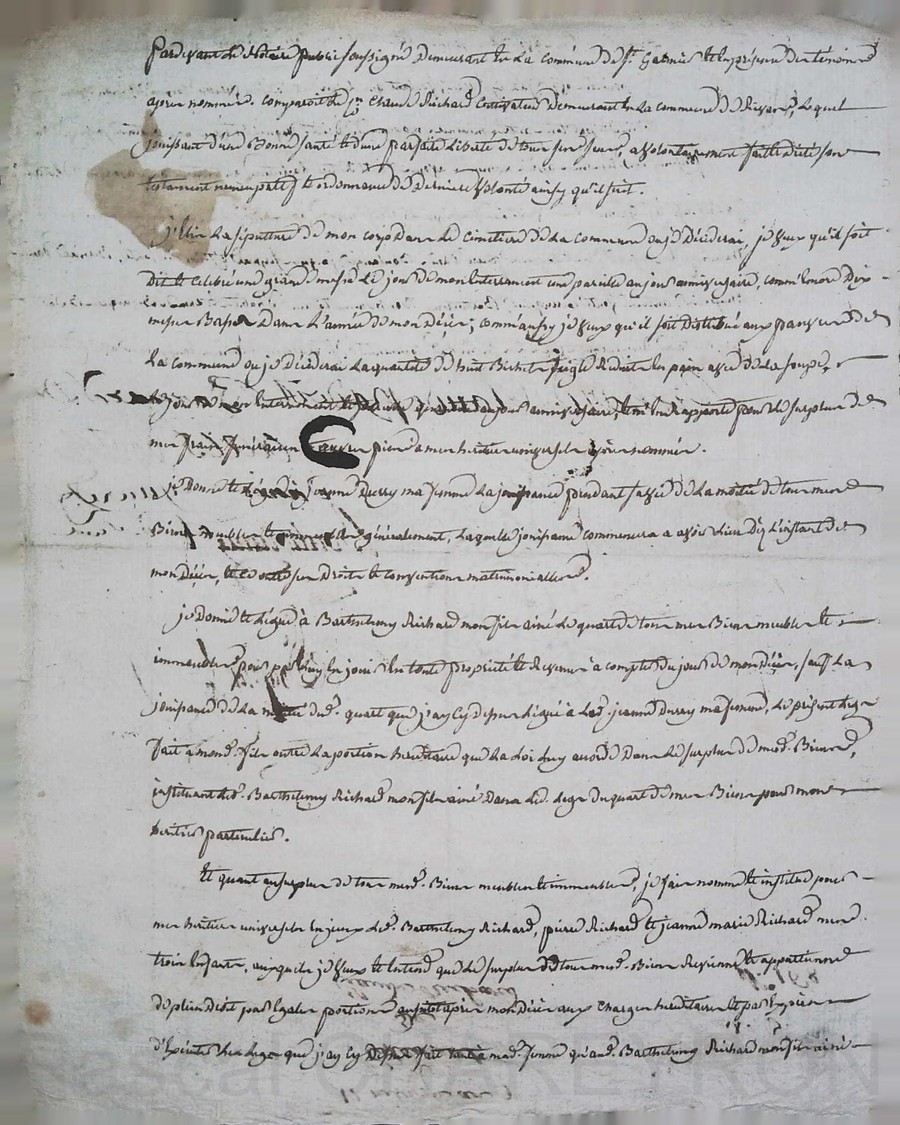 Pardevant le Notaire public soussigné Demeurant en la commune de St. Galmier et en présence des témoins
apres nommés. comparoit le sr. Claude Richard Cultivateur Demeurant en la commune de Lequel
jouissant d'une Bonne santé et d'une parfaite Liberté de tous ses sens, a volontairement fait et dicté son
testament nuncupatif et ordonnance de Derniere volonté ainsy qu'il suit.
j'Elis La sépulture de mon corps Dans Le Cimetiere de La Commune ou je Décéderai, je veux qu'il soit
Dit et célébré une grande messe Le jour de mon Enterrement une pareille au jour anniversaire, comm'encore Dix
messes Basses Dans L'année de mon Décès; comm'aussy je veux qu'il soit distribué aux pauvres de
La commune ou je Décéderai La quantité de huit Bichets seigle réduits en pain avec de La soupe,
Le jour de mon Enterrement et au jour anniversaire, m'en rapporte pour Le surplus de
mes frais funéraires pieux a mes heritiers universels apres nommés.
je Donne et Legue à jeanne Durry ma femme La jouissance pendant sa vie de La moitié de tous mes
Biens meubles et immeubles généralement, Laquelle jouissance commencera a avoir Lieu Dès L'instant de
mon Décès, et ce outre ses Droits et conventions matrimonialles.
je Donne et Légue à Barthelemy Richard mon fils ainé Le quart de tous mes Biens meubles et
immeubles pour par Luy En jouir En toute propriété et Revenus a compter du jour de mon Décès, sauf La
jouissance de La moitié dud. quart que j'ay cy Dessus Légué à Lad. jeanne Durry ma femme, Le présent Legs
fait a mond. fils outre La portion héréditaire que La Loi Luy accorde Dans Le surplus de mesd. Biens,
instituant Led. Barthelemy Richard mon fils ainé Dans Led. Legs du quart de mes Biens pour mon
heritier particulier.
Et quant au surplus de tous mesd. Biens meubles et immeubles, je fais nomme et institue pour
mes heritiers universels En jceux Led. Barthelemy Richard, pierre Richard et jeanne marie Richard mes
trois Enfants, auxquels je veux et Entend que Le surplus de tous mesd. Biens Revienne et appartienne
de plein droit par Egales portions aussitot après mon Décès aux Charges héréditaires et par Exprès
d'Exécuter Les Legs que j'ay cy Dessus fait tant à mad. femme qu'aud. Barthelemy Richard mon fils ainé